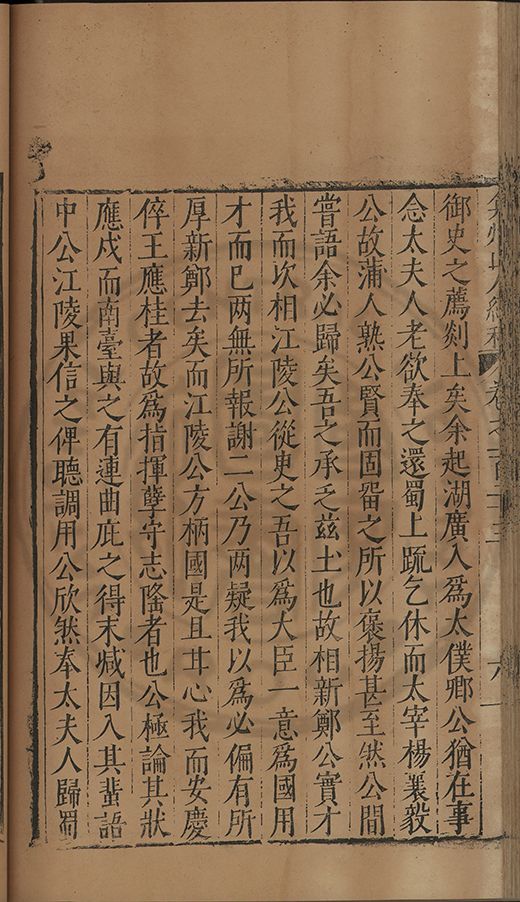 御史之薦剡上矣余起湖廣入爲太僕卿公猶在事
念太夫人老欲奉之還蜀上䟽乞休而太宰楊襄毅
公故蒲人熟公賢而固畱之所以褒揚甚至然公間
嘗語余必歸矣吾之承乏兹土也故相新鄭公實才
我而次相江陵公從臾之吾以爲大臣一意爲國用
才而已两無所報謝二公乃两疑我以爲必偏有所
厚新鄭去矣而江陵公方柄國是且甘心我而安慶
倅王應桂者故爲指揮孽守志隆者也公極論其狀
應戍而南臺與之有連曲庇之得末减因入其蜚語
中公江陵果信之俾聽調用公欣然奉太夫人歸蜀
弇州山人續稿 卷之一百二十三 六